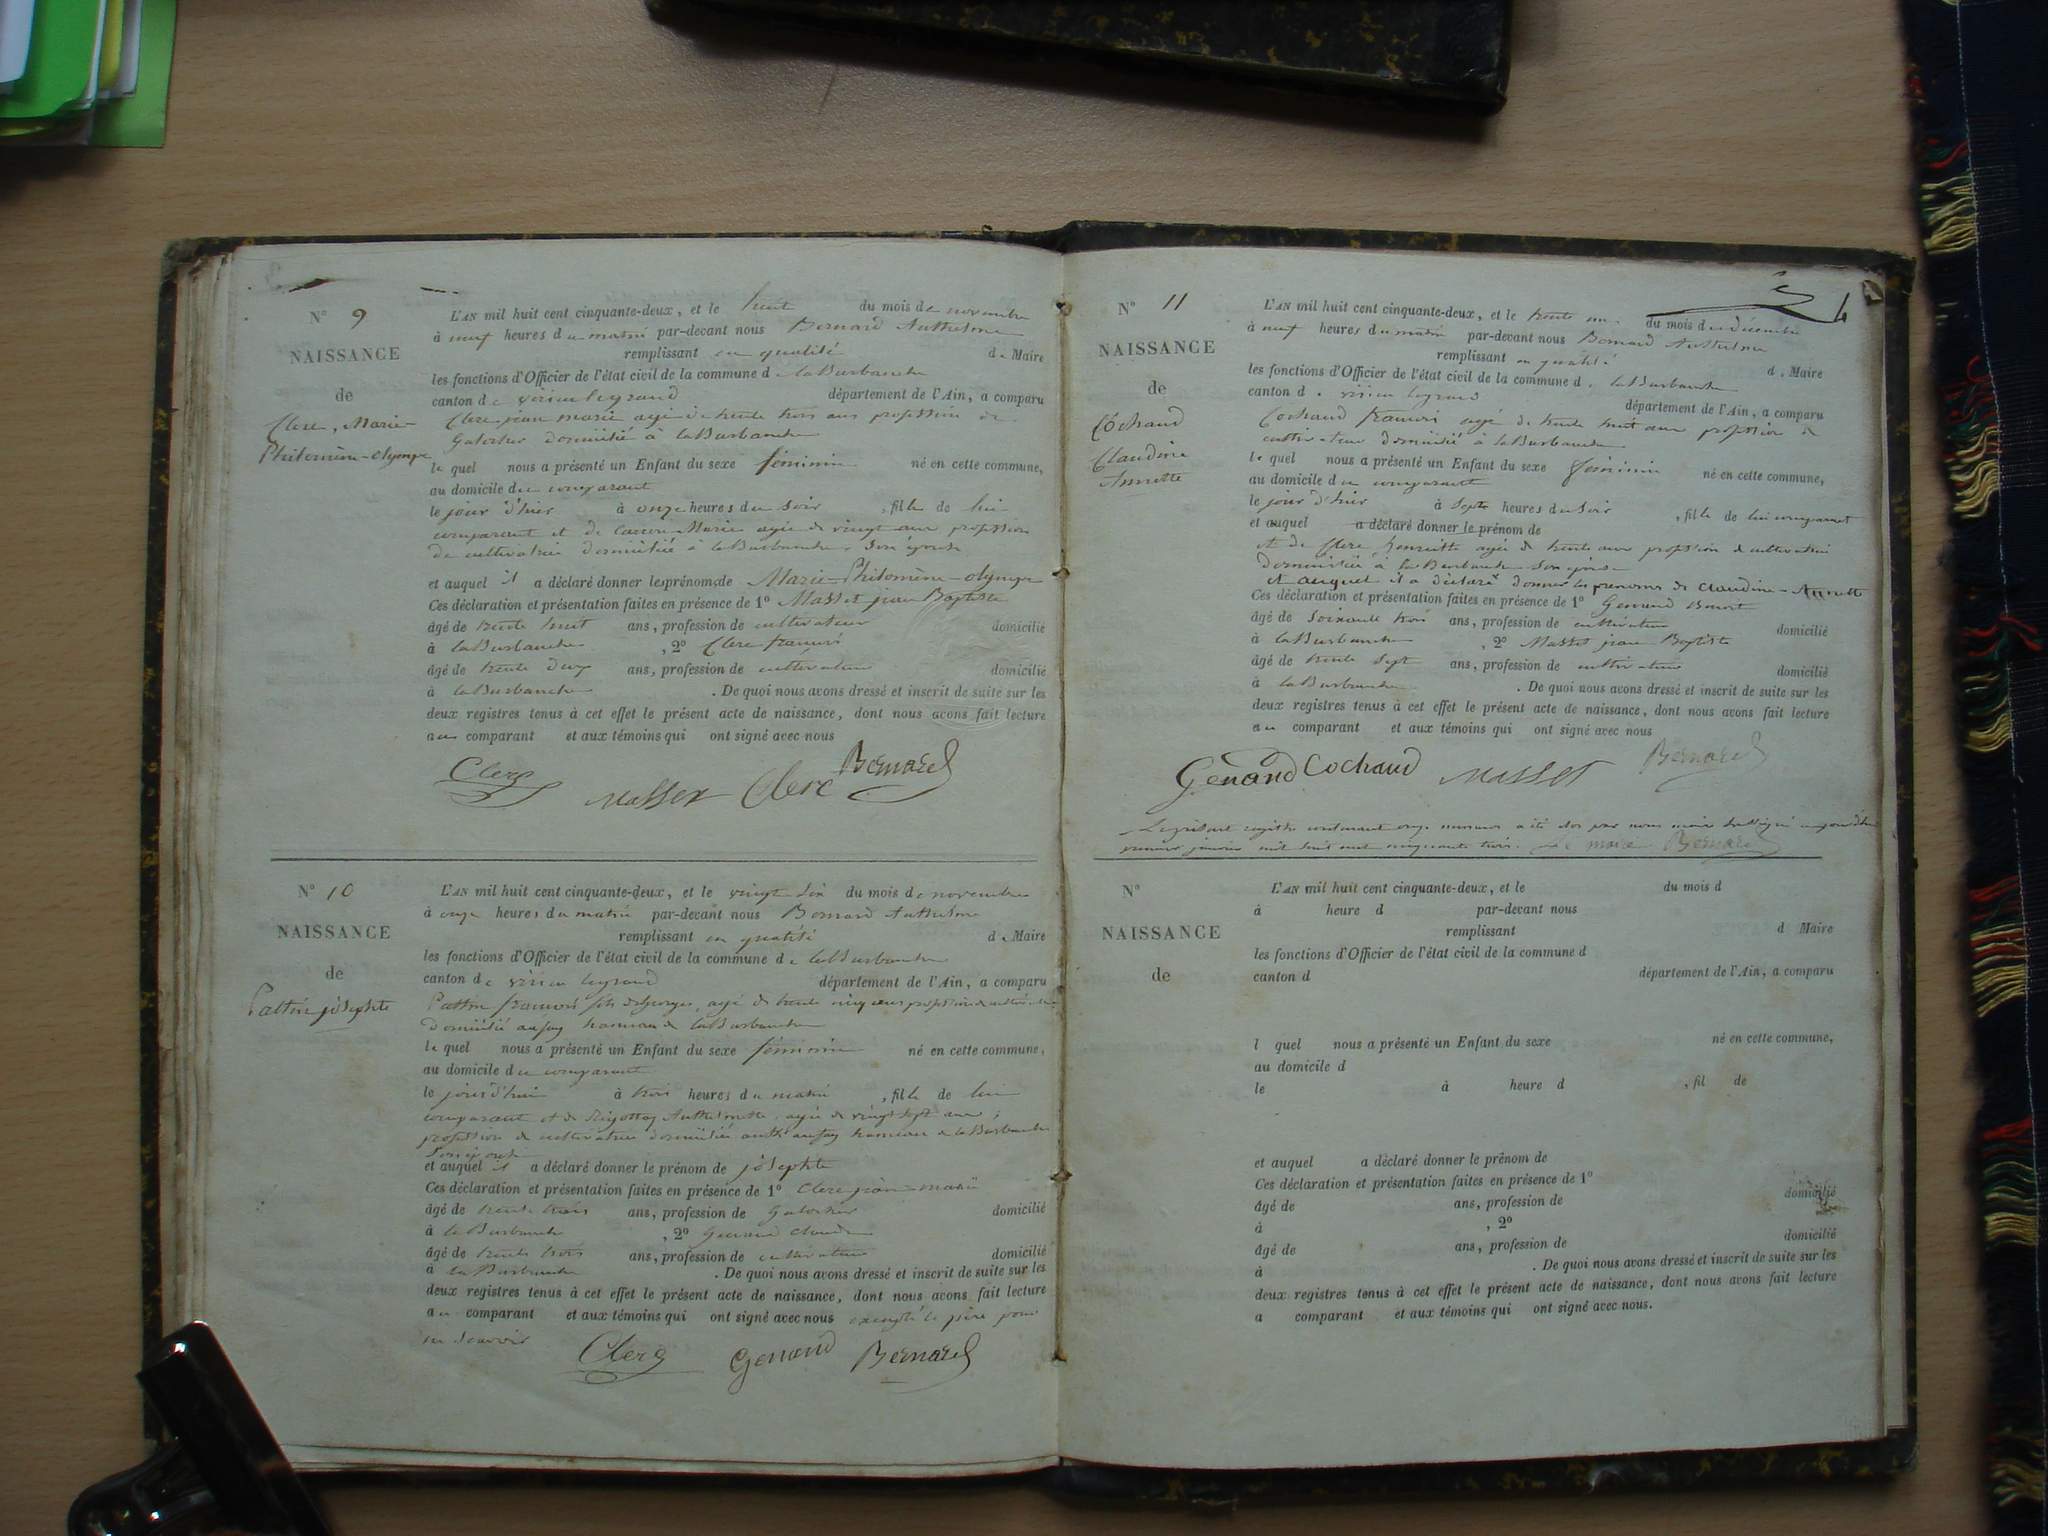 N° 9
NAISSANCE
de
Clerc, Marie-
Philomène-olympe
L'AN mil huit cent cinquante-deux, et le huit du mois de novembre
à neuf heures du matin par-devant nous Bernard Anthelme
remplissant en qualité de Maire
les fonctions d'Officier de l'état civil de la commune de laBurbanche
canton de virieu legrand département de l'Ain, a comparu
Clerc jean marie agé de trente trois ans profession de
Galocher domicilié à laBurbanche
lequel nous a présenté un Enfant du sexe féminin né en cette commune,
au domicile du comparant
le jour d'hier à onze heures du soir, fille de lui
comparant et de Marie agée de vingt ans profession
de cultivatrice domiciliée à laBurbanche, Son épouse
et auquel il a déclaré donner les prénoms de Marie-Philomène-olympe
Ces déclaration et présentation faites en présence de 1° Masset jean Baptiste
âgé de trente huit ans, profession de cultivateur domicilié
à laBurbanche, 2° Clerc françois
âgé de trente deux ans, profession de cultivateur domicilié
à laBurbanche. De quoi nous avons dressé et inscrit de suite sur les
deux registres tenus à cet effet le présent acte de naissance, dont nous avons fait lecture
au comparant et aux témoins qui ont signé avec nous
Clerc Masset Clerc Bernard
N° 10
NAISSANCE
de
Pattin joséphte
L'AN mil huit cent cinquante-deux, et le vingt Six du mois de novembre
à onze heures du matin par-devant nous Bernard Anthelme
remplissant en qualité de Maire
les fonctions d'Officier de l'état civil de la commune de laBurbanche
canton de virieu legrand département de l'Ain, a comparu
Pattin françois fils de Georges, agé de trente cinq ans profession de cultivateur
domicilié aufay hameau de laBurbanche
lequel nous a présenté un Enfant du sexe féminin né en cette commune,
au domicile du comparant
le jourd'hui à trois heures du matin, fille de lui
comparant et de Anthelmette agée de vingt Sept ans,
profession de cultivatrice domiciliée aufay hameau de laBurbanche
Son épouse
et auquel il a déclaré donner le prénom de joséphte
Ces déclaration et présentation faites en présence de 1° Clerc jean-marie
âgé de trente trois ans, profession de Galocher domicilié
à laBurbanche, 2° Genand Claude
âgé de trente trois ans, profession de cultivateur domicilié
à laBurbanche. De quoi nous avons dressé et inscrit de suite sur les
deux registres tenus à cet effet le présent acte de naissance, dont nous avons fait lecture
au comparant et aux témoins qui ont signé avec nous excepté le père pour
ne Savoir
Clerc Genand Bernard
4
N° 11
NAISSANCE
de
Cochaud
Claudine
Annette
L'AN mil huit cent cinquante-deux, et le trente un du mois de décembre
à neuf heures du matin par-devant nous Bernard Anthelme
remplissant en qualité de Maire
les fonctions d'Officier de l'état civil de la commune de laBurbanche
canton de virieu legrand département de l'Ain, a comparu
Cochaud françois agé de trente huit ans profession de
cultivateur domicilié à laBurbanche
lequel nous a présenté un Enfant du sexe féminin né en cette commune,
au domicile du comparant
le jour d'hier à Sept heures du Soir, fille de lui comparant
et auquel a déclaré donner le prénom de
et de Clerc henriette agée de trente ans profession de cultivatrice
domiciliée à la Burbanche Son épouse
et auquel il a déclaré donner les prénoms de Claudine-Annette
Ces déclaration et présentation faites en présence de 1° Genand Benoit
âgé de Soixante trois ans, profession de cultivateur domicilié
à laBurbanche, 2° Masset jean Baptiste
âgé de trente Sept ans, profession de cultivateur domicilié
à laBurbanche. De quoi nous avons dressé et inscrit de suite sur les
deux registres tenus à cet effet le présent acte de naissance, dont nous avons fait lecture
au comparant et aux témoins qui ont signé avec nous
Genand Cochaud Masset Bernard
Le présent registre contenant onze numéros a été clos par nous maire Soussigné aujourd'hui
premier janvier mil huit cent cinquante trois. Le maire Bernard
N°
NAISSANCE
de
L'AN mil huit cent cinquante-deux, et le du mois d
à heure d par-devant nous
remplissant d Maire
les fonctions d'Officier de l'état civil de la commune d
canton d département de l'Ain, a comparu
l quel nous a présenté un Enfant du sexe né en cette commune,
au domicile d
le à heure d , fil de
et auquel a déclaré donner le prénom de
Ces déclaration et présentation faites en présence de 1°
âgé de ans, profession de domicilié
à , 2°
âgé de ans, profession de domicilié
à . De quoi nous avons dressé et inscrit de suite sur les
deux registres tenus à cet effet le présent acte de naissance, dont nous avons fait lecture
a comparant et aux témoins qui ont signé avec nous.